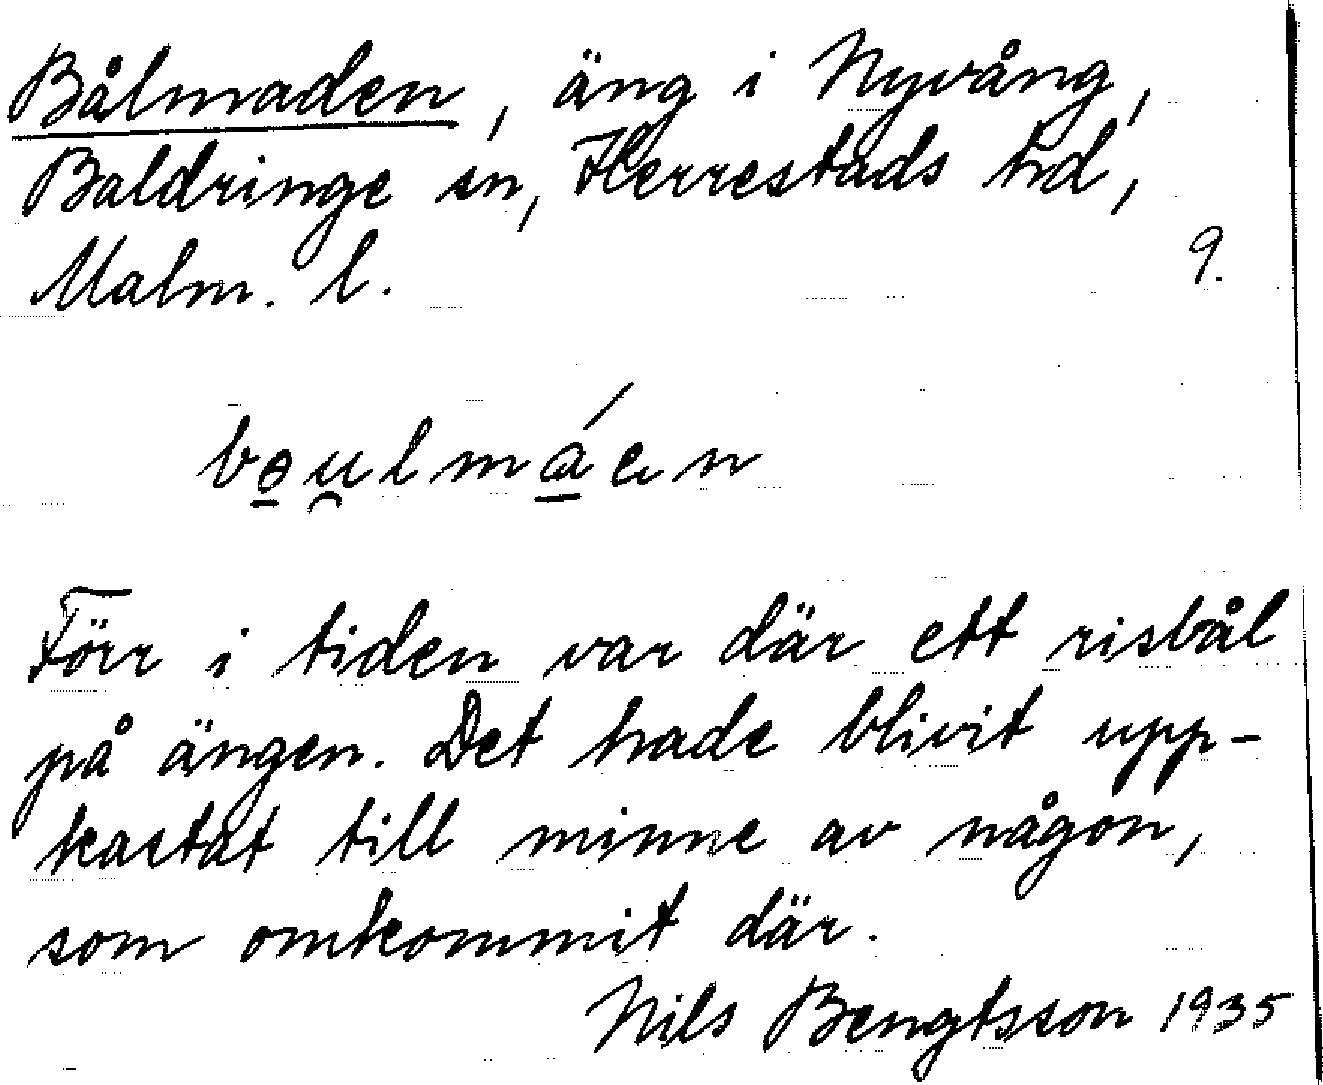 Bålmaden, äng i Nyvång,
Baldringe sn, Herrestads hd,
Malm. l.
9.
boulmáen
Förr i tiden var där ett risbål
på ängen. Det hade blivit upp-
kastat till minne av någon,
som omkommit där.
Nils Bengtsson 1935